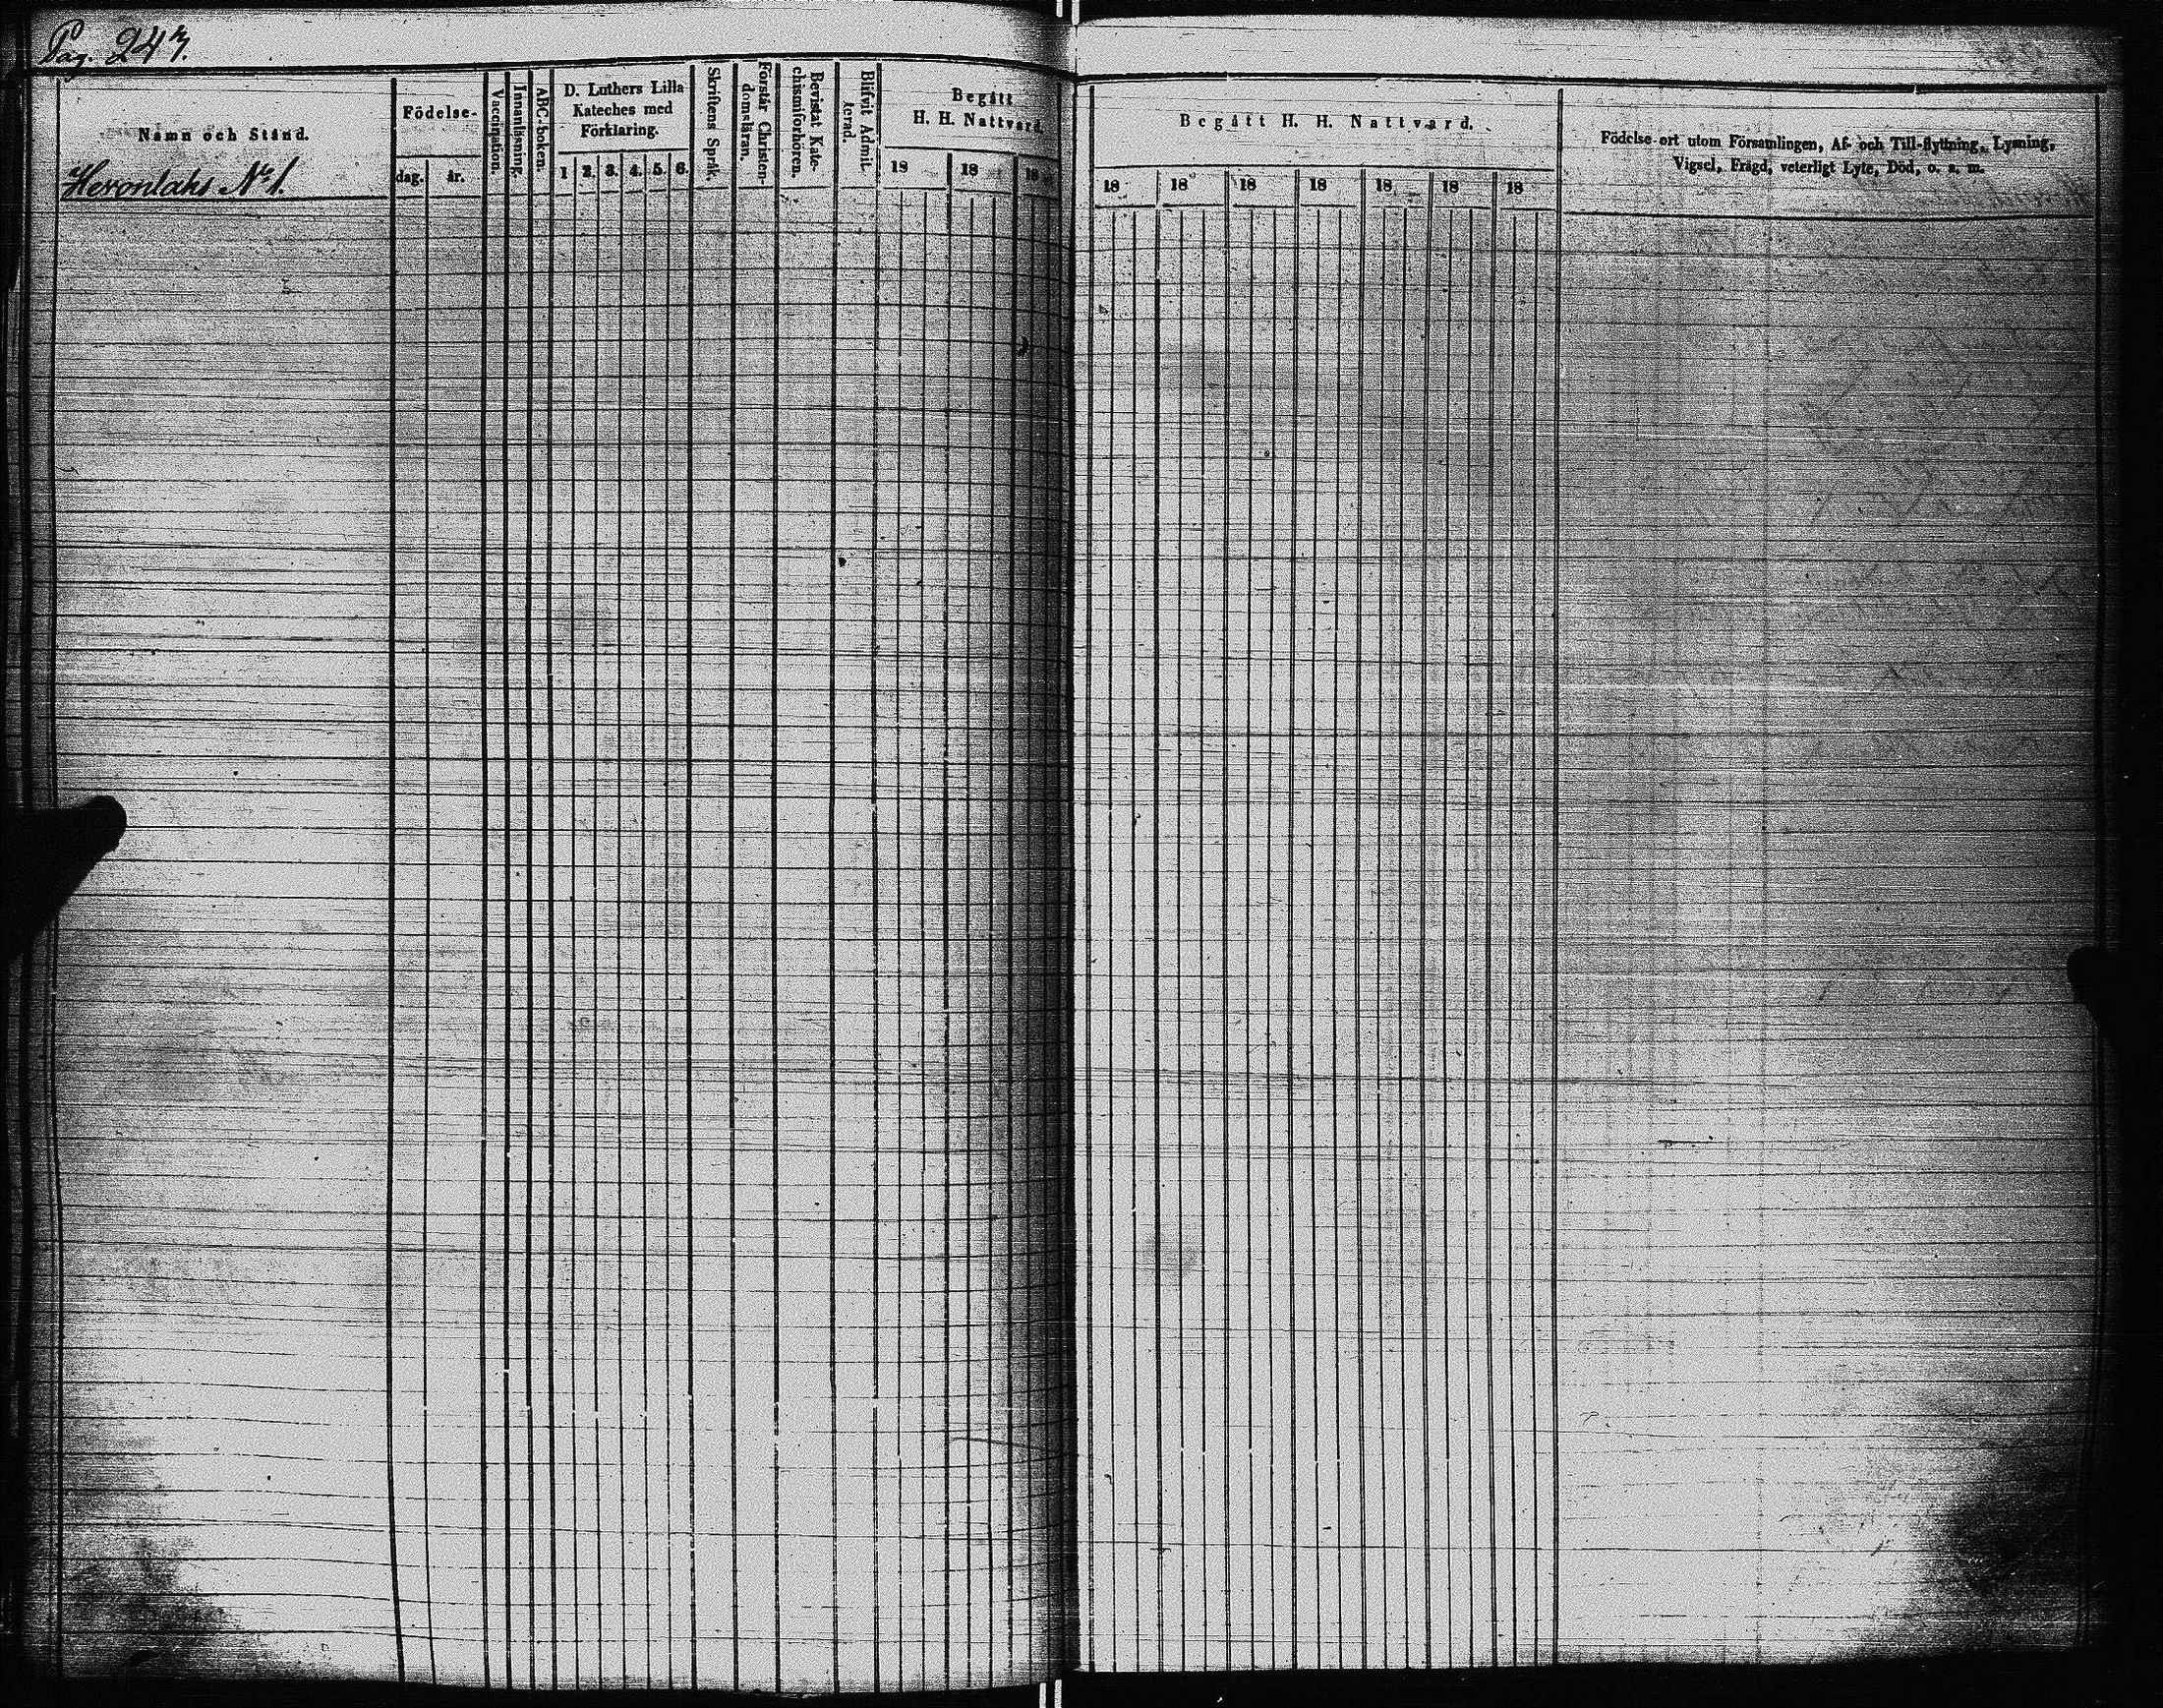 Pag. 247.
Namn och Stånd.
Heronlaks No 1.
Födelse-
dag.
år.
Vaccination.
Innanläsning.
ABC-boken.
D. Luthers Lilla
Kateches med
Förklaring.
1 2. 3. 4. 5. 6.
Skriftens Språk.
Förstår Christen-
domsläran.
Bevistat Kate-
chismiförhören.
Blifvit Admit-
terad.
Begått
H. H. Nattvard.
18 18 18
Begått H. H. Nattvard.
18 18 18 18 18 18 18
Födelse-ort utom Församlingen, Af- och Till-flyttning, Lysning,
Vigsel, Frägd, veterligt Lyte, Död, o. s. m.